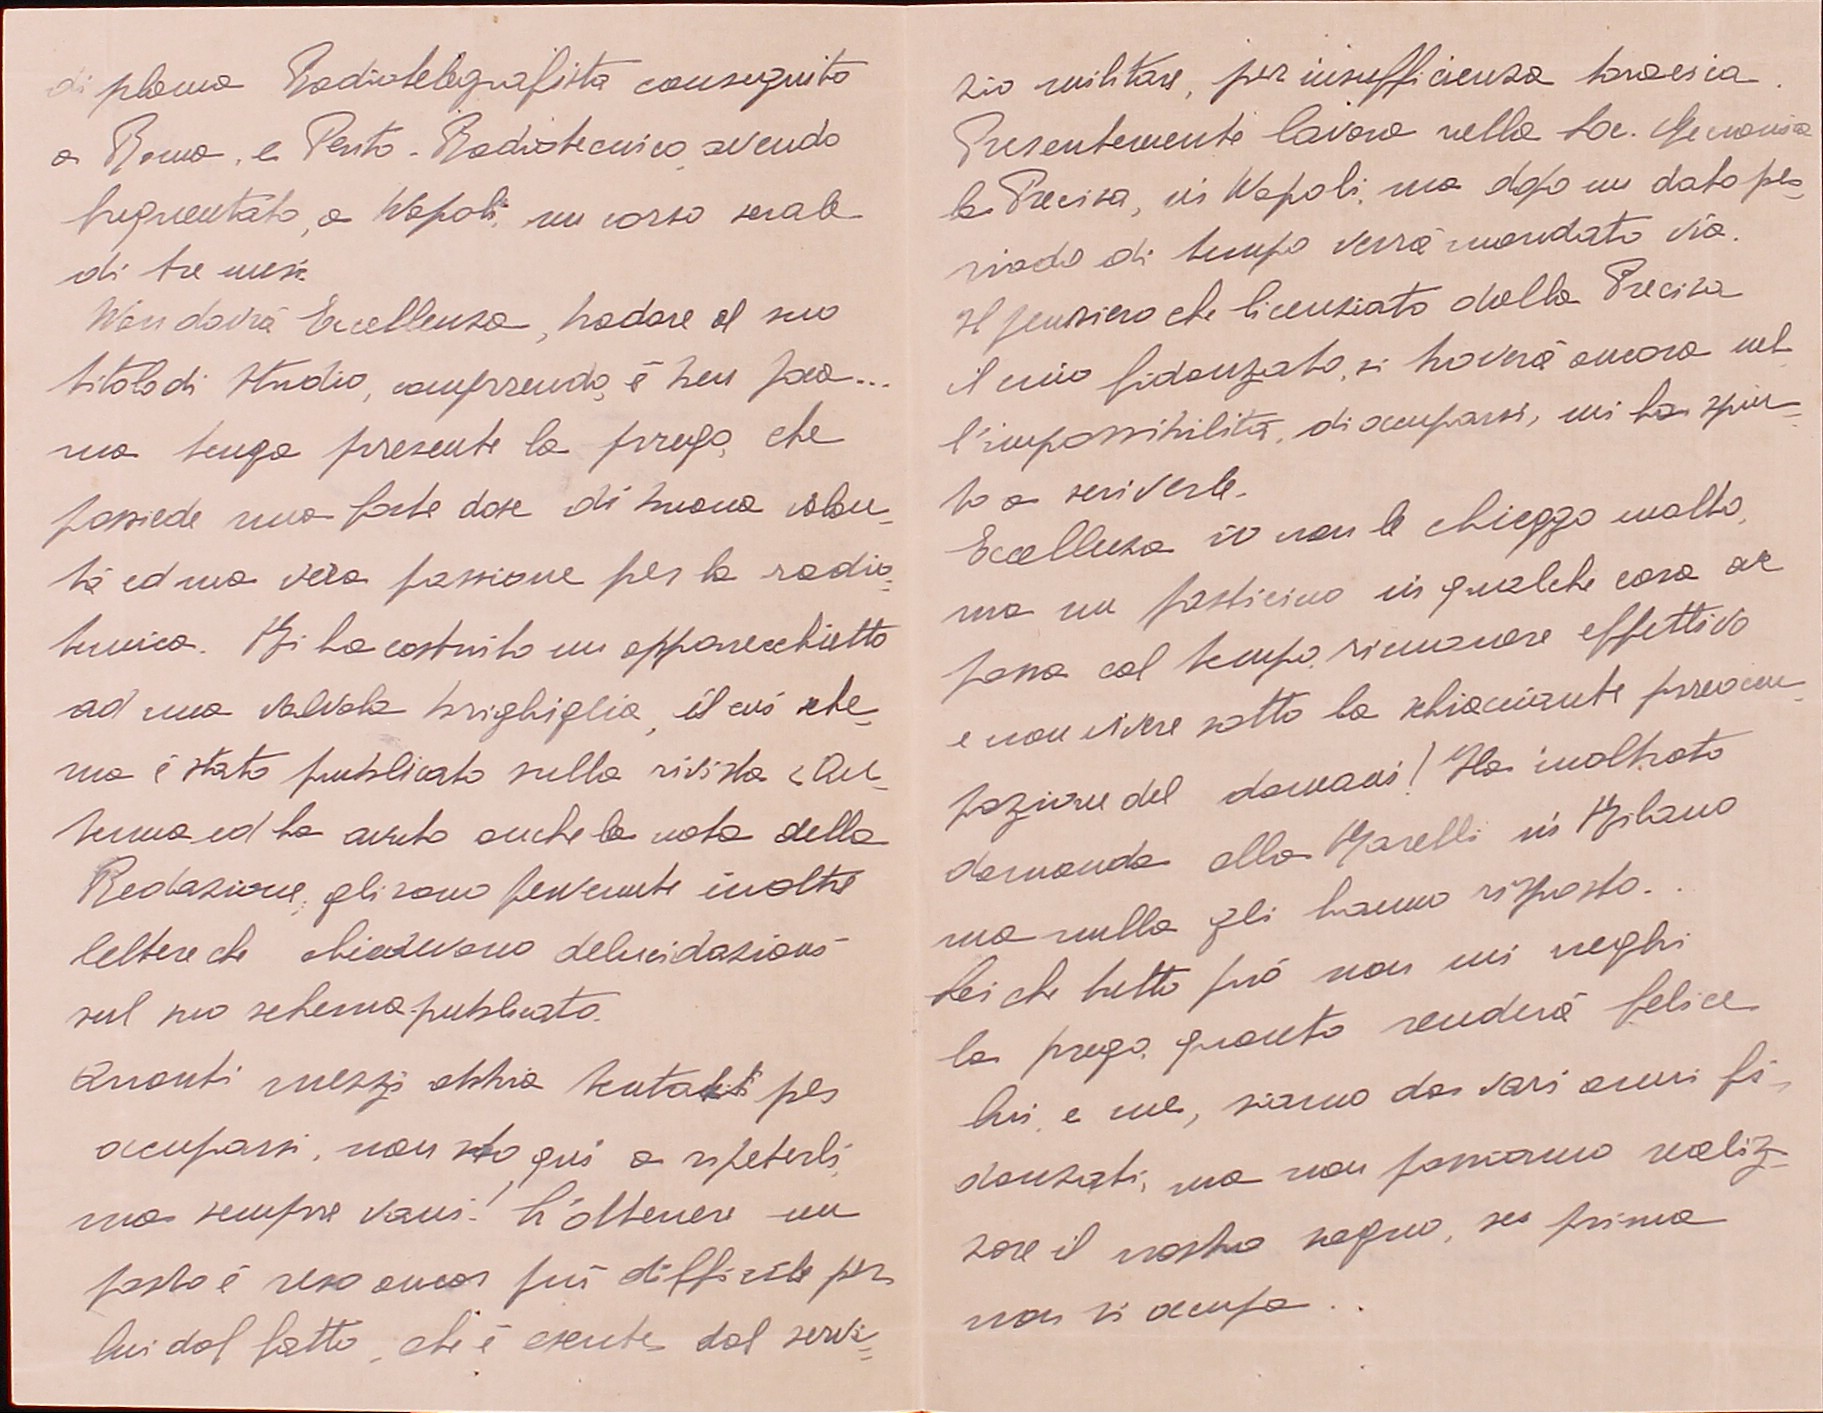 diploma Radiotelegrafista conseguito
a Roma, e Perito-Radiotecnico, avendo
frequentato, a Napoli, un corso serale
di tre mesi.
Non dovrà Eccellenza, badare al suo
titolo di studio, comprendo, è ben poco...
ma tenga presente la prego, che
possiede una forte dose di buona volon=
tà ed una vera passione per la radio=
tecnica. Mi ha costruito un apparecchietto
ad una valvola brighiglia, il cui sche=
ma è stato pubblicato sulla rivista "An=
tenna ed ha avuto anche la nota della
Redazione, gli sono pervenute inoltre
lettere che chiedevano delucidazioni
sul suo schema pubblicato.
Quanti mezzi abbia tentati per
occuparsi, non sto quì a ripeterli,
ma sempre vani! L'ottenere un
posto è reso ancor più difficile per
lui dal fatto, che è esente dal servi=
zio militare, per insufficienza toracica.
Presentemente lavora nella Soc. Meccanica
la Precisa, in Napoli, ma dopo un dato pe=
riodo di tempo verrà mandato via.
Il pensiero che licenziato dalla Precisa
il mio fidanzato, si troverà ancora nel=
l'impossibilità, di occuparsi, mi ha spin=
to a scriverle.
Eccellenza io non le chieggo molto,
ma un posticino in qualche cosa ove
possa col tempo, rimanere effettivo
e non vivere sotto la schiacciante preoccu=
pazione del domani! Ha inoltrato
domanda alla Marelli in Milano
ma nulla gli hanno risposto..
Lei che tutto può non mi neghi
la prego, quanto renderà felice
lui, e me, siamo da vari anni fi=
danzati, ma non possiamo realiz=
zare il nostro sogno, se prima
non si occupa..